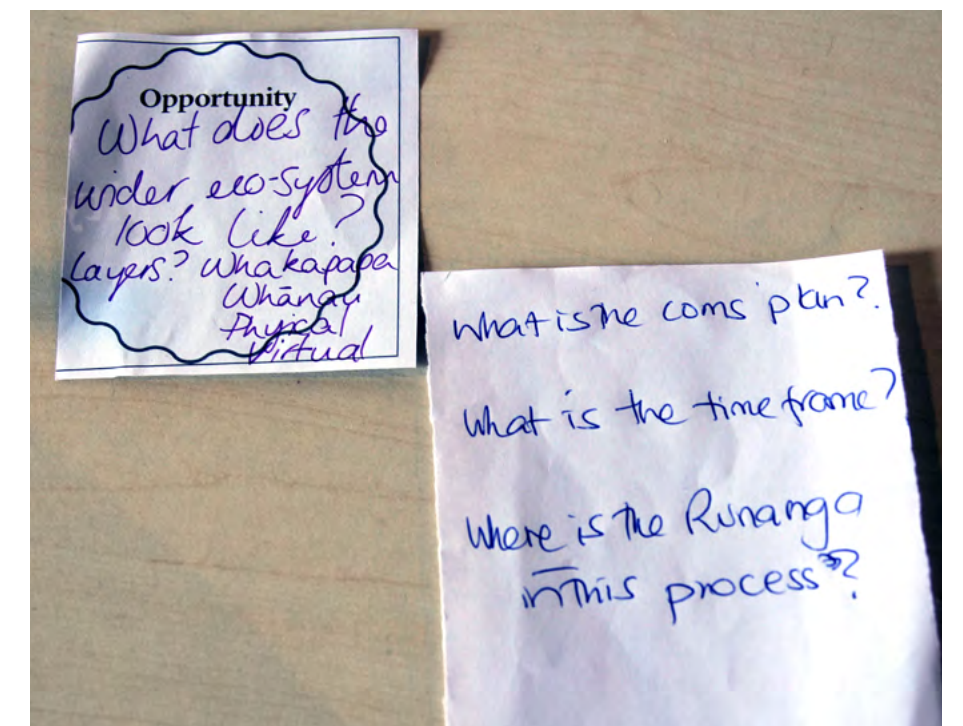 Opportunity
What does the
wider eco-system
look like?
Layers? Whakapapa
Whānau
Physical
Virtual
What is the coms plan?
What is the timeframe?
Where is the Runanga
in this process?